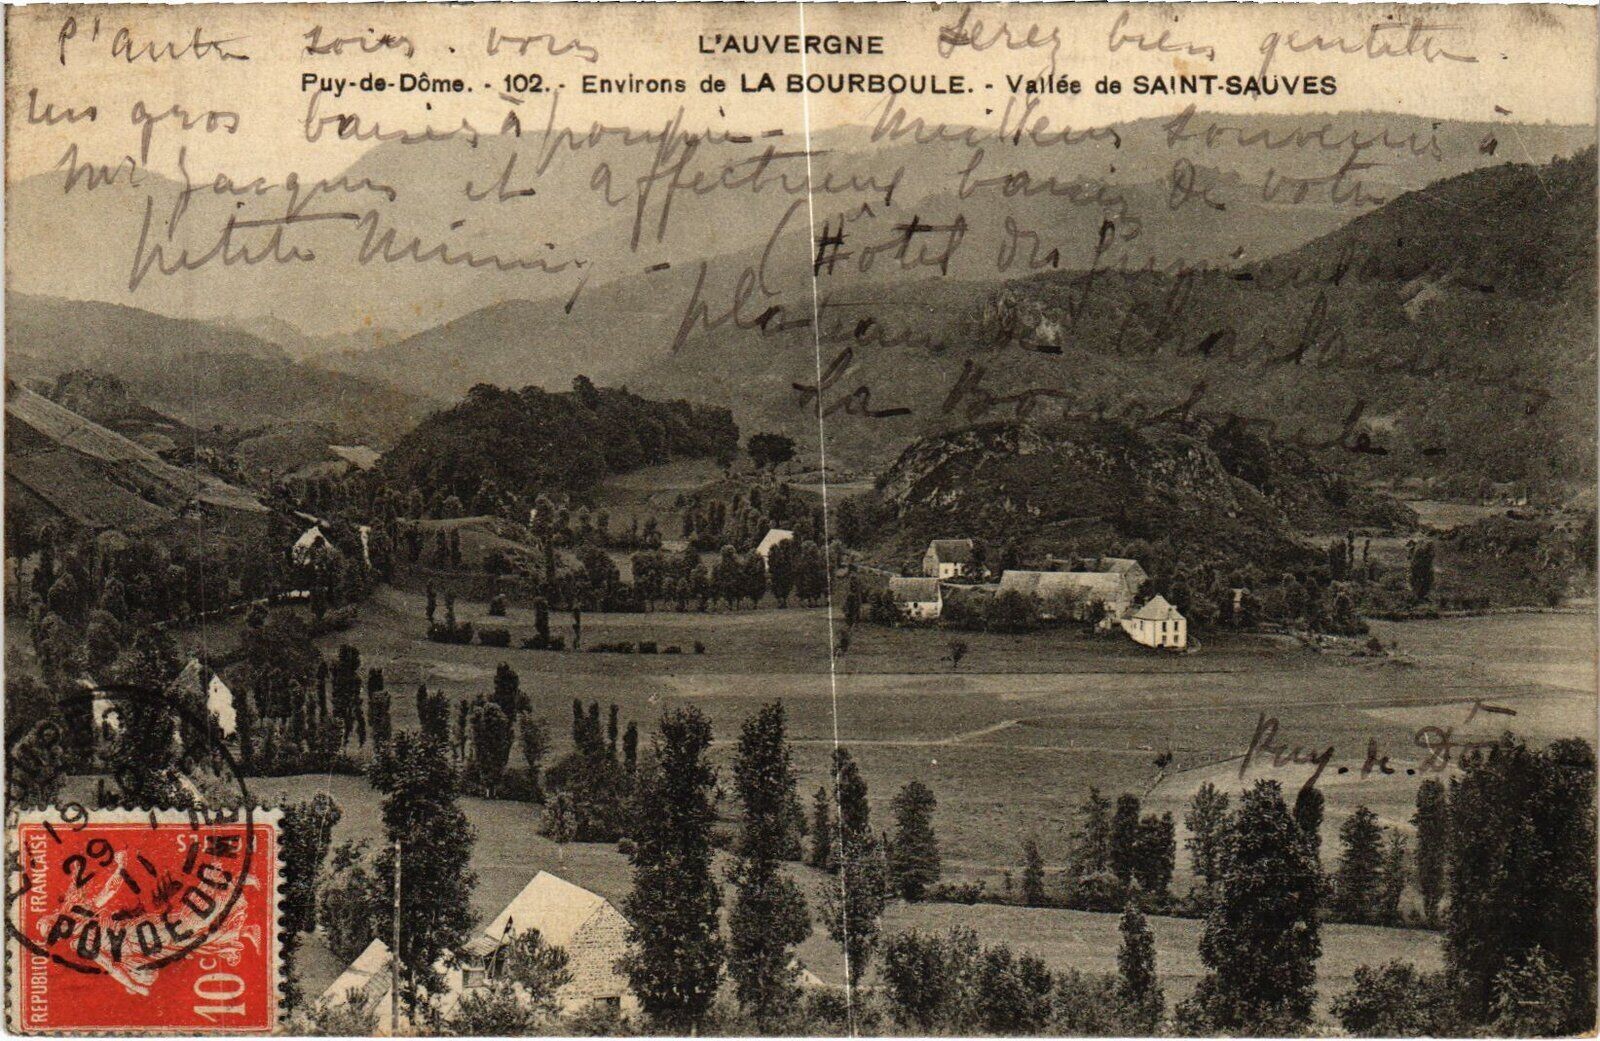 l'autre soir. vous serez bien gentille
L'AUVERGNE
Puy-de-Dôme. - 102. - Environs de LA BOURBOULE. - Vallée de SAINT-SAUVES
un gros baiser à Meilleurs souvenirs à
Mr Jacques et affectueux baisers de votre
petite Mimi - (Hôtel du funiculaire
plateau de Charlannes
La Bourboule -
Puy. de. Dôme
29
PUY DE DOME
REPUBLIQUE FRANÇAISE
POSTES
10 c